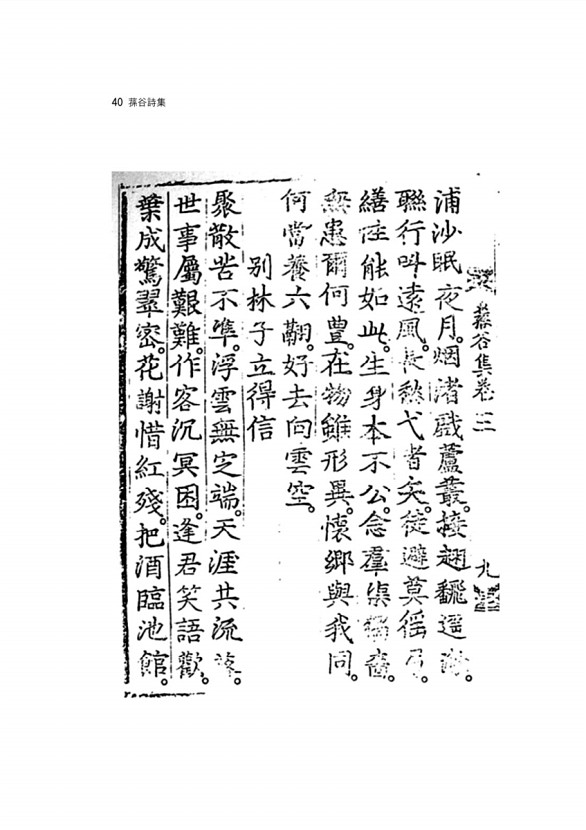 40 蓀谷詩集
蓀谷集卷三 九
浦沙眠夜月。烟渚戲蘆叢。接翅飜遥
聯行叫遠風。長愁弋者矣。徒避莫徭弓。
繕性能如此。生身本不公。念羣稻嗇。
無患爾何豊。在物雖形異。懷鄉與我同。
何當養六翮。好去向雲空。
別林子立得信
聚散苦不準。浮雲無定端。天涯共流落。
世事屬艱難。作客沉冥困。逢君笑語歡。
葉成驚翠密。花謝惜紅殘。把酒臨池館。